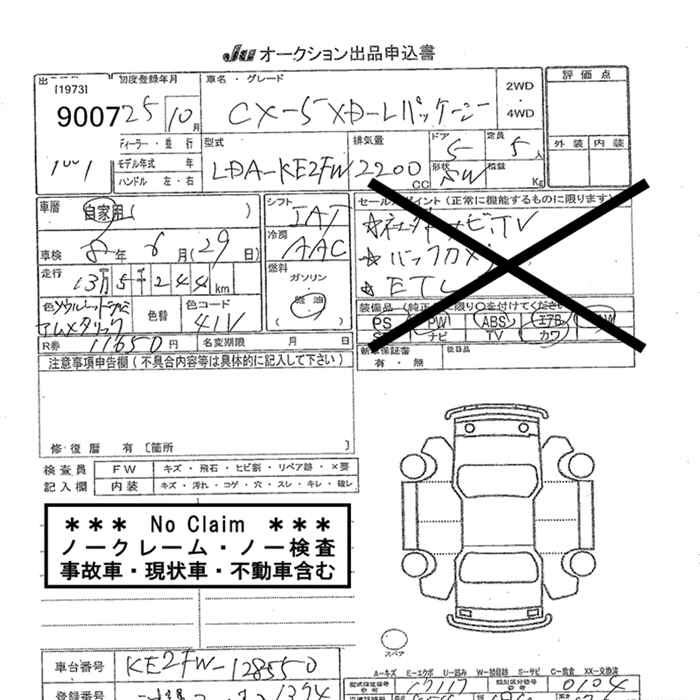 Ju オークション出品申込書
[1973]
初度登録年月
車名・グレード
2WD
・
4WD
評価点
9007
25
10月
CX-5 XD-Lパッケージ
外装 内装
ディーラー・並行
モデル年式 年
ハンドル 左・右
型式
LDA-KE2FW
排気量
2200 CC
ドア
5
形状
SW
定員
5人
積載
Kg
車歴
自家用( )
車検 8年 6月(29日)
走行
13万5千244km
色
ソウルレッド
メタリック
色替
色コード
41V
シフト
IAT
冷房
AAC
燃料
ガソリン
軽油
セールスポイント(正常に機能するものに限ります)
TV
装備品(純正品に限り〇を付けてください)
PS PW ABS エアB AW
ナビ TV カワ
新車保証書
有・無
後日品
R券 11650円
名変期限 月 日
注意事項申告欄(不具合内容等は具体的に記入して下さい)
修・復歴 有〔箇所
検査員
記入欄
FW キズ・飛石・ヒビ割・リペア跡・×要
内装 キズ・汚れ・コゲ・穴・スレ・キレ・破レ
*** No Claim ***
ノークレーム・ノー検査
事故車・現状車・不動車含む
スペア
A-キズ E-エクボ U-凹み W-補修跡 S-サビ C-腐食 XX-交換済
車台番号 KE2FW-128550
登録番号
型式指定番号
類別区分番号
0104